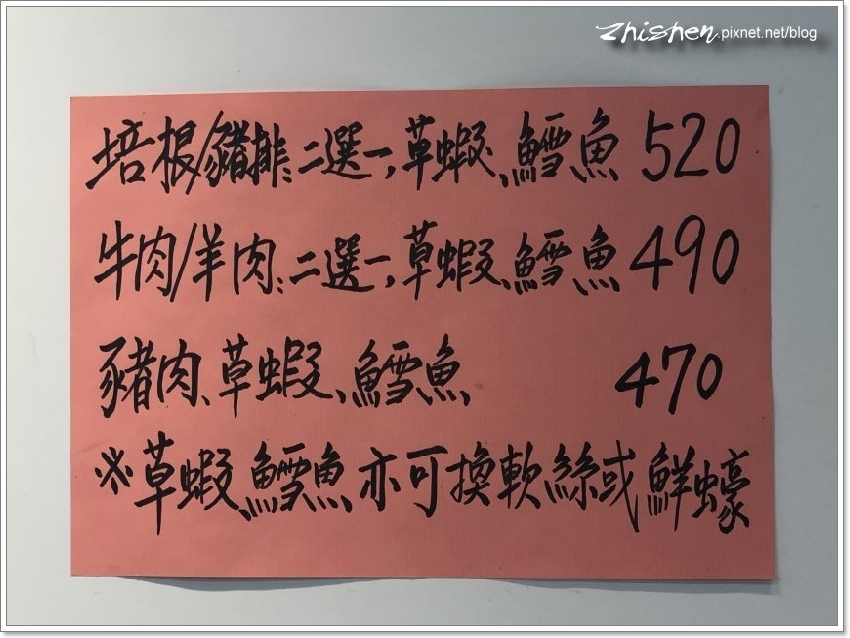 Zhishen.pixnet.net/blog
培根/豬排:二選一,草蝦、鱈魚 520
牛肉/羊肉:二選一,草蝦、鱈魚 490
豬肉、草蝦、鱈魚 470
※草蝦、鱈魚亦可換軟絲或鮮蠔